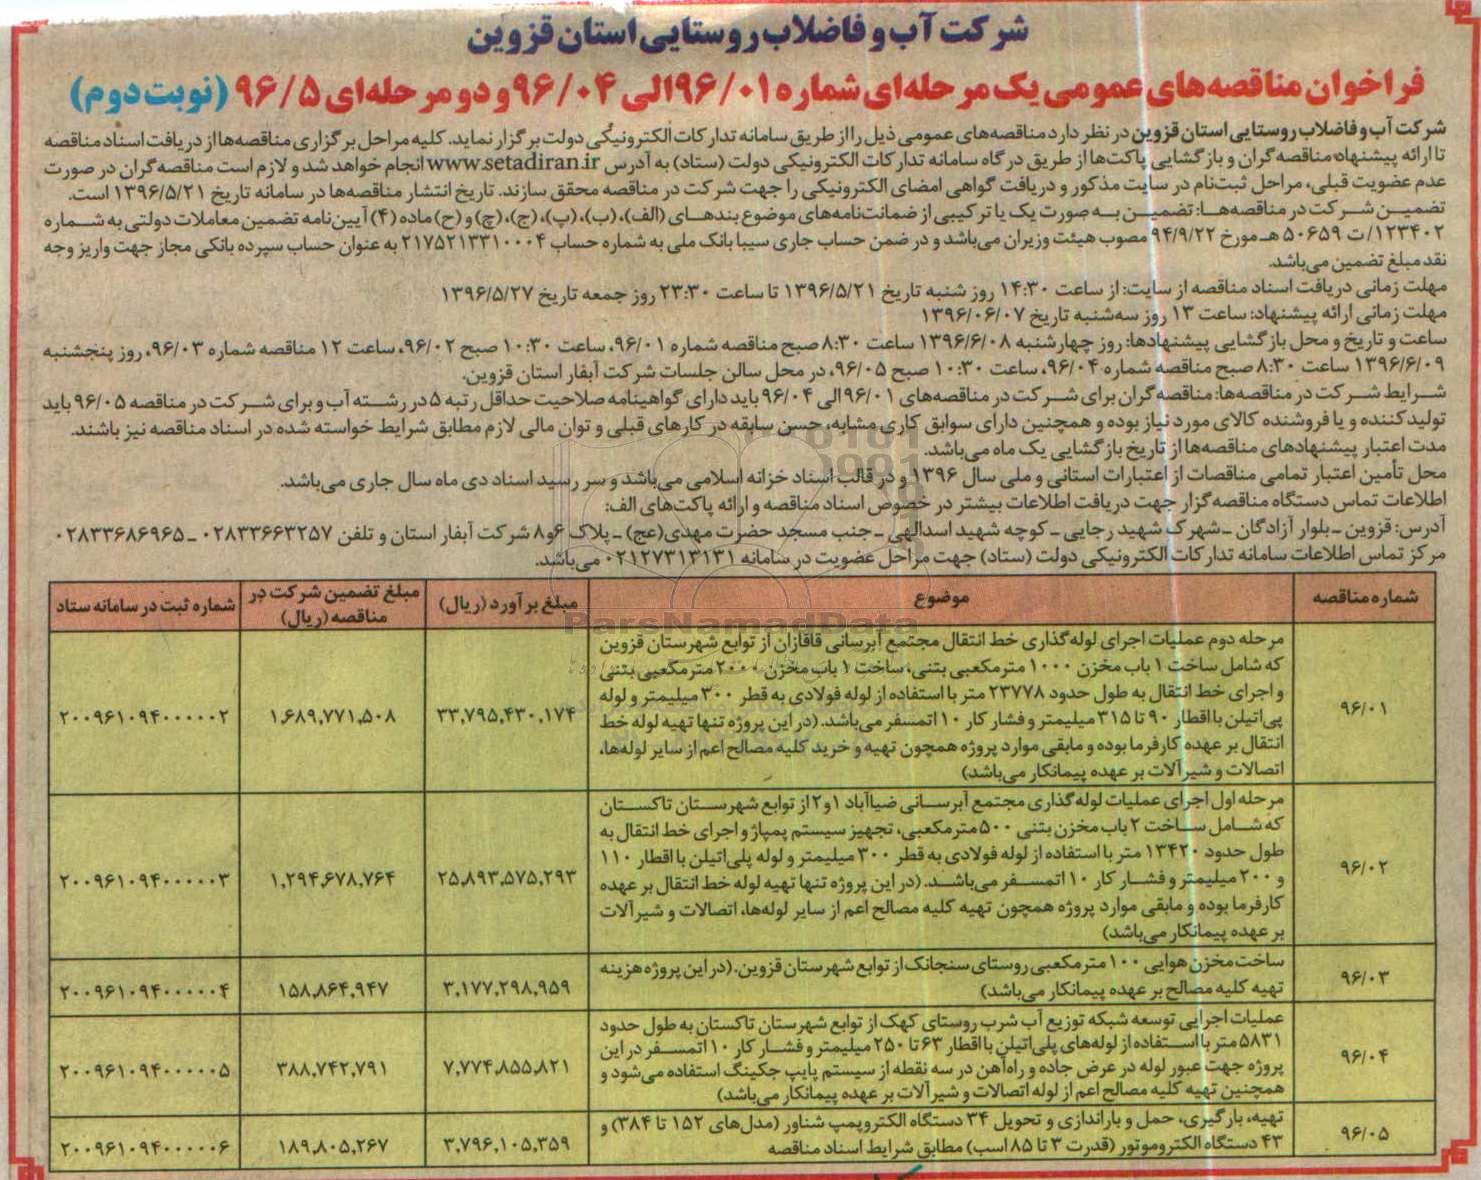 شرکت آب و فاضلاب روستایی استان قزوین
فراخوان مناقصه‌های عمومی یک مرحله‌ای شماره ۹۶/۰۱ الی ۹۶/۰۴ و دو مرحله‌ای ۹۶/۵ (نوبت دوم)
شرکت آب و فاضلاب روستایی استان قزوین در نظر دارد مناقصه‌های عمومی ذیل را از طریق سامانه تدارکات الکترونیکی دولت برگزار نماید. کلیه مراحل برگزاری مناقصه‌ها از دریافت اسناد مناقصه
تا ارائه پیشنهاد مناقصه‌گران و بازگشایی پاکت‌ها از طریق درگاه سامانه تدارکات الکترونیکی دولت (ستاد) به آدرس www.setadiran.ir انجام خواهد شد و لازم است مناقصه‌گران در صورت
عدم عضویت قبلی، مراحل ثبت‌نام در سایت مذکور و دریافت گواهی امضای الکترونیکی را جهت شرکت در مناقصه محقق سازند. تاریخ انتشار مناقصه‌ها در سامانه تاریخ ۱۳۹۶/۵/۲۱ است.
تضمین شرکت در مناقصه‌ها: تضمین به صورت یک یا ترکیبی از ضمانت‌نامه‌های موضوع بندهای (الف)، (ب)، (پ)، (ج)، (چ) و (ح) ماده (۴) آیین‌نامه تضمین معاملات دولتی به شماره
۱۲۳۴۰۲/ت ۵۰۶۵۹ هـ مورخ ۹۴/۹/۲۲ مصوب هیئت وزیران می‌باشد و در ضمن حساب جاری سیبا بانک ملی به شماره حساب ۲۱۷۵۲۱۳۳۱۰۰۰۴ به عنوان حساب سپرده بانکی مجاز جهت واریز وجه
نقد مبلغ تضمین می‌باشد.
مهلت زمانی دریافت اسناد مناقصه از سایت: از ساعت ۱۴:۳۰ روز شنبه تاریخ ۱۳۹۶/۵/۲۱ تا ساعت ۲۳:۳۰ روز جمعه تاریخ ۱۳۹۶/۵/۲۷
مهلت زمانی ارائه پیشنهاد: ساعت ۱۳ روز سه‌شنبه تاریخ ۱۳۹۶/۰۶/۰۷
ساعت و تاریخ و محل بازگشایی پیشنهادها: روز چهارشنبه ۱۳۹۶/۶/۰۸ ساعت ۸:۳۰ صبح مناقصه شماره ۹۶/۰۱، ساعت ۱۰:۳۰ صبح ۹۶/۰۲، ساعت ۱۲ مناقصه شماره ۹۶/۰۳، روز پنجشنبه
۱۳۹۶/۶/۰۹ ساعت ۸:۳۰ صبح مناقصه شماره ۹۶/۰۴، ساعت ۱۰:۳۰ صبح ۹۶/۰۵، در محل سالن جلسات شرکت آبفار استان قزوین.
شرایط شرکت در مناقصه‌ها: مناقصه‌گران برای شرکت در مناقصه‌های ۹۶/۰۱ الی ۹۶/۰۴ باید دارای گواهینامه صلاحیت حداقل رتبه ۵ در رشته آب و برای شرکت در مناقصه ۹۶/۰۵ باید
تولیدکننده و یا فروشنده کالای مورد نیاز بوده و همچنین دارای سوابق کاری مشابه، حسن سابقه در کارهای قبلی و توان مالی لازم مطابق شرایط خواسته شده در اسناد مناقصه نیز باشند.
مدت اعتبار پیشنهادهای مناقصه‌ها از تاریخ بازگشایی یک ماه می‌باشد.
محل تأمین اعتبار تمامی مناقصات از اعتبارات استانی و ملی سال ۱۳۹۶ و در قالب اسناد خزانه اسلامی می‌باشد و سررسید اسناد دی ماه سال جاری می‌باشد.
اطلاعات تماس دستگاه مناقصه‌گزار جهت دریافت اطلاعات بیشتر در خصوص اسناد مناقصه و ارائه پاکت‌های الف:
آدرس: قزوین - بلوار آزادگان - شهرک شهید رجایی - کوچه شهید اسدالهی - جنب مسجد حضرت مهدی(عج) - پلاک ۶و۸ شرکت آبفار استان و تلفن ۰۲۸۳۳۶۶۳۲۵۷ - ۰۲۸۳۳۶۸۶۹۶۵
مرکز تماس اطلاعات سامانه تدارکات الکترونیکی دولت (ستاد) جهت مراحل عضویت در سامانه ۰۲۱۲۷۳۱۳۱۳۱ می‌باشد.
شماره مناقصه موضوع مبلغ برآورد (ریال) مبلغ تضمین شرکت در مناقصه (ریال) شماره ثبت در سامانه ستاد
۹۶/۰۱
مرحله دوم عملیات اجرای لوله‌گذاری خط انتقال مجتمع آبرسانی قاقازان از توابع شهرستان قزوین
که شامل ساخت ۱ باب مخزن ۱۰۰۰ مترمکعبی بتنی، ساخت ۱ باب مخزن ۲۰۰۰ مترمکعبی بتنی
و اجرای خط انتقال به طول حدود ۲۳۷۷۸ متر با استفاده از لوله فولادی به قطر ۳۰۰ میلیمتر و لوله
پی‌اتیلن با اقطار ۹۰ تا ۳۱۵ میلیمتر و فشار کار ۱۰ اتمسفر می‌باشد. (در این پروژه تنها تهیه لوله خط
انتقال بر عهده کارفرما بوده و مابقی موارد پروژه همچون تهیه و خرید کلیه مصالح اعم از سایر لوله‌ها،
اتصالات و شیرآلات بر عهده پیمانکار می‌باشد)
۳۳,۷۹۵,۴۳۰,۱۷۴ ۱,۶۸۹,۷۷۱,۵۰۸ ۲۰۰۹۶۱۰۹۴۰۰۰۰۰۲
۹۶/۰۲
مرحله اول اجرای عملیات لوله‌گذاری مجتمع آبرسانی ضیاآباد ۱و۲ از توابع شهرستان تاکستان
که شامل ساخت ۲ باب مخزن بتنی ۵۰۰ مترمکعبی، تجهیز سیستم پمپاژ و اجرای خط انتقال به
طول حدود ۱۳۴۲۰ متر با استفاده از لوله فولادی به قطر ۳۰۰ میلیمتر و لوله پلی‌اتیلن با اقطار ۱۱۰
و ۲۰۰ میلیمتر و فشار کار ۱۰ اتمسفر می‌باشد. (در این پروژه تنها تهیه لوله خط انتقال بر عهده
کارفرما بوده و مابقی موارد پروژه همچون تهیه کلیه مصالح اعم از سایر لوله‌ها، اتصالات و شیرآلات
بر عهده پیمانکار می‌باشد)
۲۵,۸۹۳,۵۷۵,۲۹۳ ۱,۲۹۴,۶۷۸,۷۶۴ ۲۰۰۹۶۱۰۹۴۰۰۰۰۰۳
۹۶/۰۳
ساخت مخزن هوایی ۱۰۰ مترمکعبی روستای سنجانک از توابع شهرستان قزوین. (در این پروژه هزینه
تهیه کلیه مصالح بر عهده پیمانکار می‌باشد)
۳,۱۷۷,۲۹۸,۹۵۹ ۱۵۸,۸۶۴,۹۴۷ ۲۰۰۹۶۱۰۹۴۰۰۰۰۰۴
۹۶/۰۴
عملیات اجرایی توسعه شبکه توزیع آب شرب روستای کهک از توابع شهرستان تاکستان به طول حدود
۵۸۳۱ متر با استفاده از لوله‌های پلی‌اتیلن با اقطار ۶۳ تا ۲۵۰ میلیمتر و فشار کار ۱۰ اتمسفر در این
پروژه جهت عبور لوله در عرض جاده و راه‌آهن در سه نقطه از سیستم پایپ جکینگ استفاده می‌شود و
همچنین تهیه کلیه مصالح اعم از لوله اتصالات و شیرآلات بر عهده پیمانکار می‌باشد)
۷,۷۷۴,۸۵۵,۸۲۱ ۳۸۸,۷۴۲,۷۹۱ ۲۰۰۹۶۱۰۹۴۰۰۰۰۰۵
۹۶/۰۵
تهیه، بارگیری، حمل و باراندازی و تحویل ۳۴ دستگاه الکتروپمپ شناور (مدل‌های ۱۵۲ تا ۳۸۴) و
۴۳ دستگاه الکتروموتور (قدرت ۳ تا ۸۵ اسب) مطابق شرایط اسناد مناقصه
۳,۷۹۶,۱۰۵,۳۵۹ ۱۸۹,۸۰۵,۲۶۷ ۲۰۰۹۶۱۰۹۴۰۰۰۰۰۶
ParsNamadData